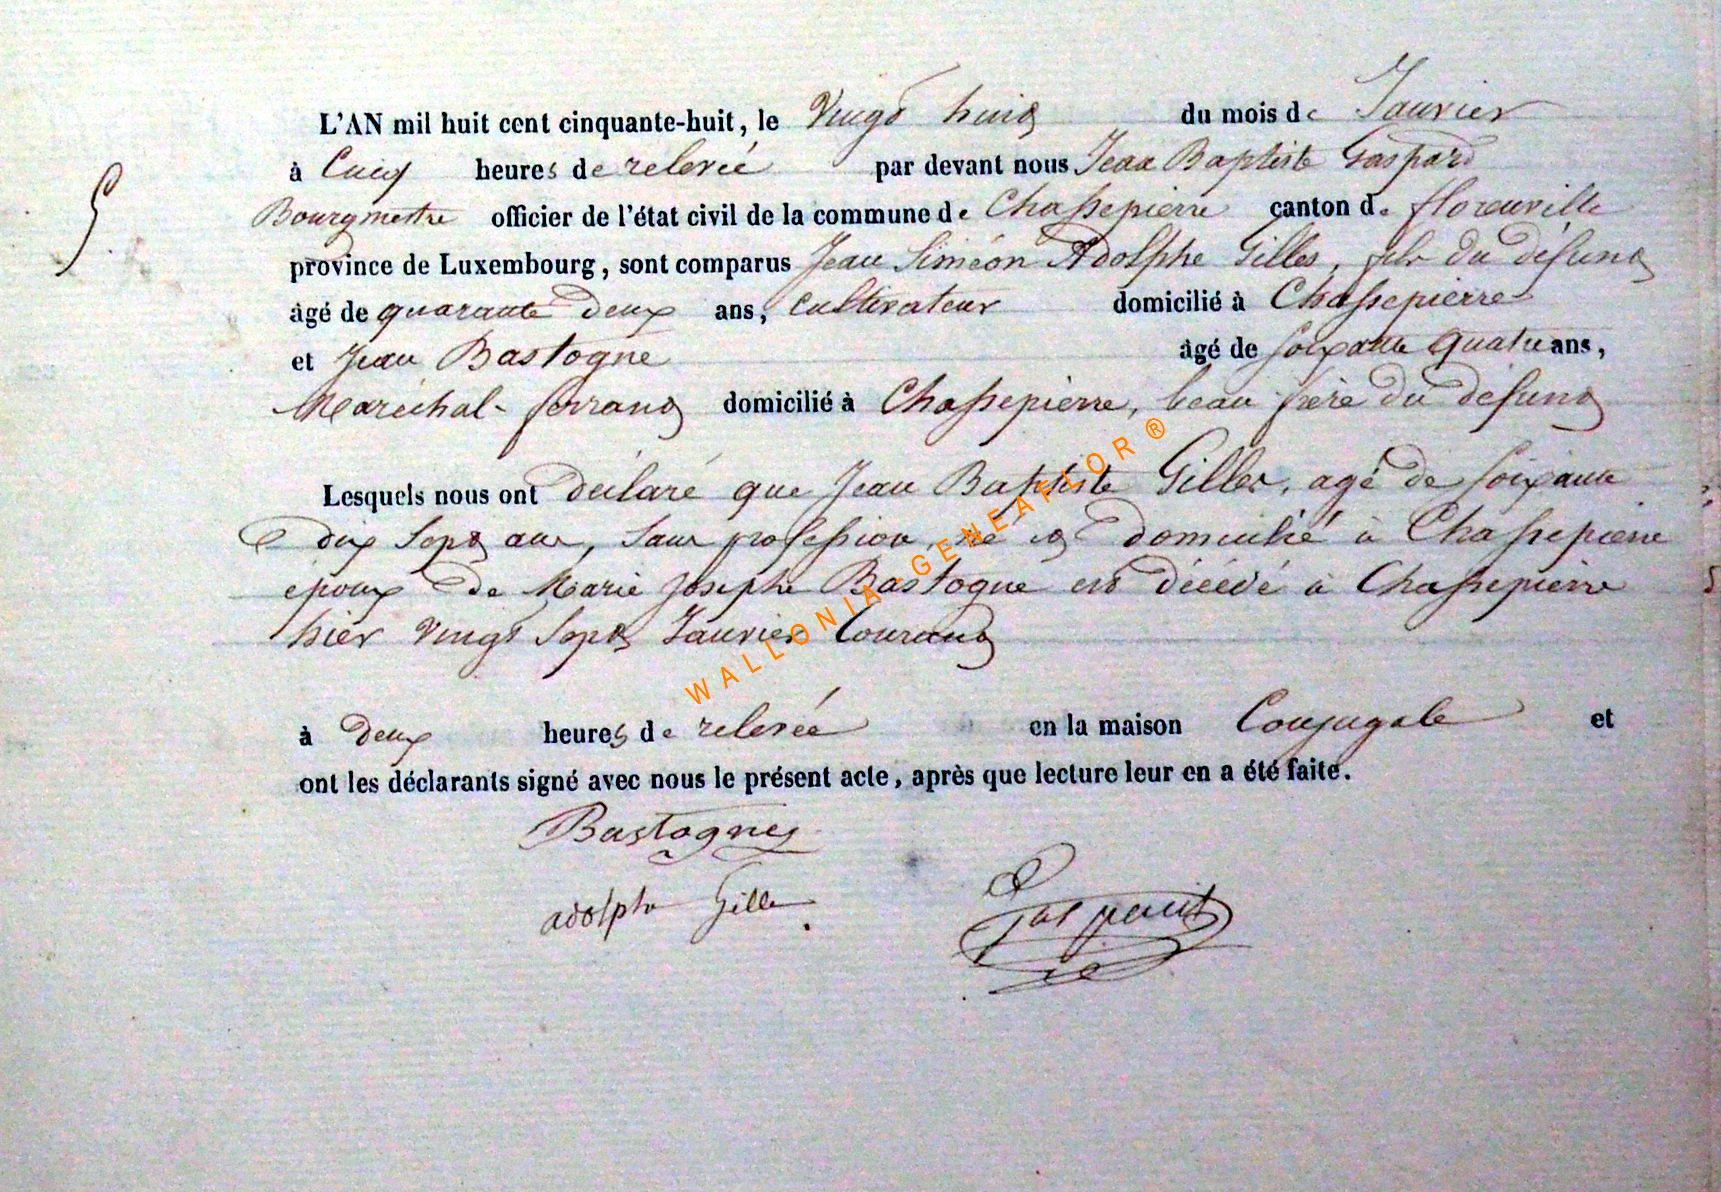 L'AN mil huit cent cinquante-huit, le Vingt huit du mois de Janvier
5
à Cinq heures de relevée par devant nous Jean Baptiste Gaspard
Bourgmestre officier de l'état civil de la commune de Chassepierre canton de florenville
province de Luxembourg, sont comparus Jean Siméon Adolphe Gilles, fils du défunt
âgé de quarante deux ans, cultivateur domicilié à Chassepierre
et Jean Bastogne âgé de soixante quatre ans,
Maréchal-ferrant domicilié à Chassepierre, beau frère du défunt
Lesquels nous ont déclaré que Jean Baptiste Gilles, agé de soixante
dix sept ans, sans profession, né et domicilié à Chassepierre
époux de Marie Josephe Bastogne est décédé à Chassepierre
hier vingt sept Janvier Courant
à deux heures de relevée en la maison Conjugale et
ont les déclarants signé avec nous le présent acte, après que lecture leur en a été faite.
Bastogne
adolphe Gilles
Gaspard
WALLONIA-GENEAFLOR ®